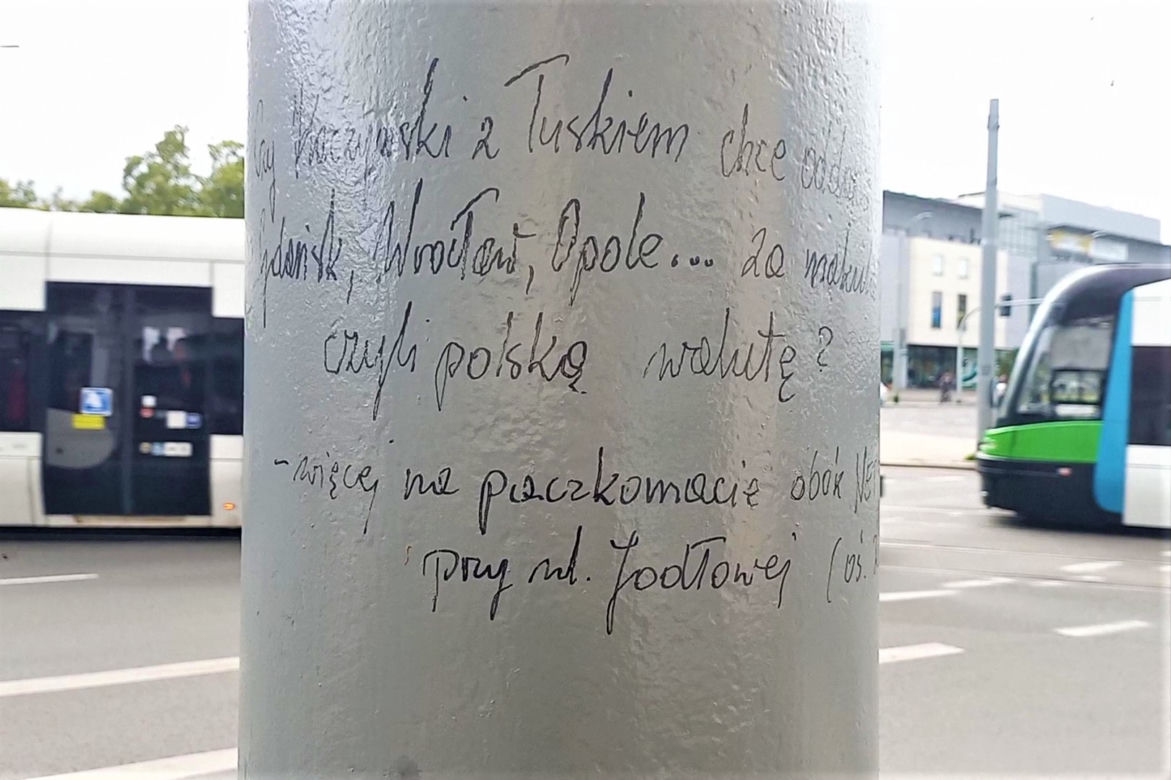 Czy Kaczyński z Tuskiem chcę odda
Gdańsk, Wrocław, Opole... za makul
czyli polską walutę?
- więcej na paczkomacie obok NE
przy ul. Jodłowej (oś.